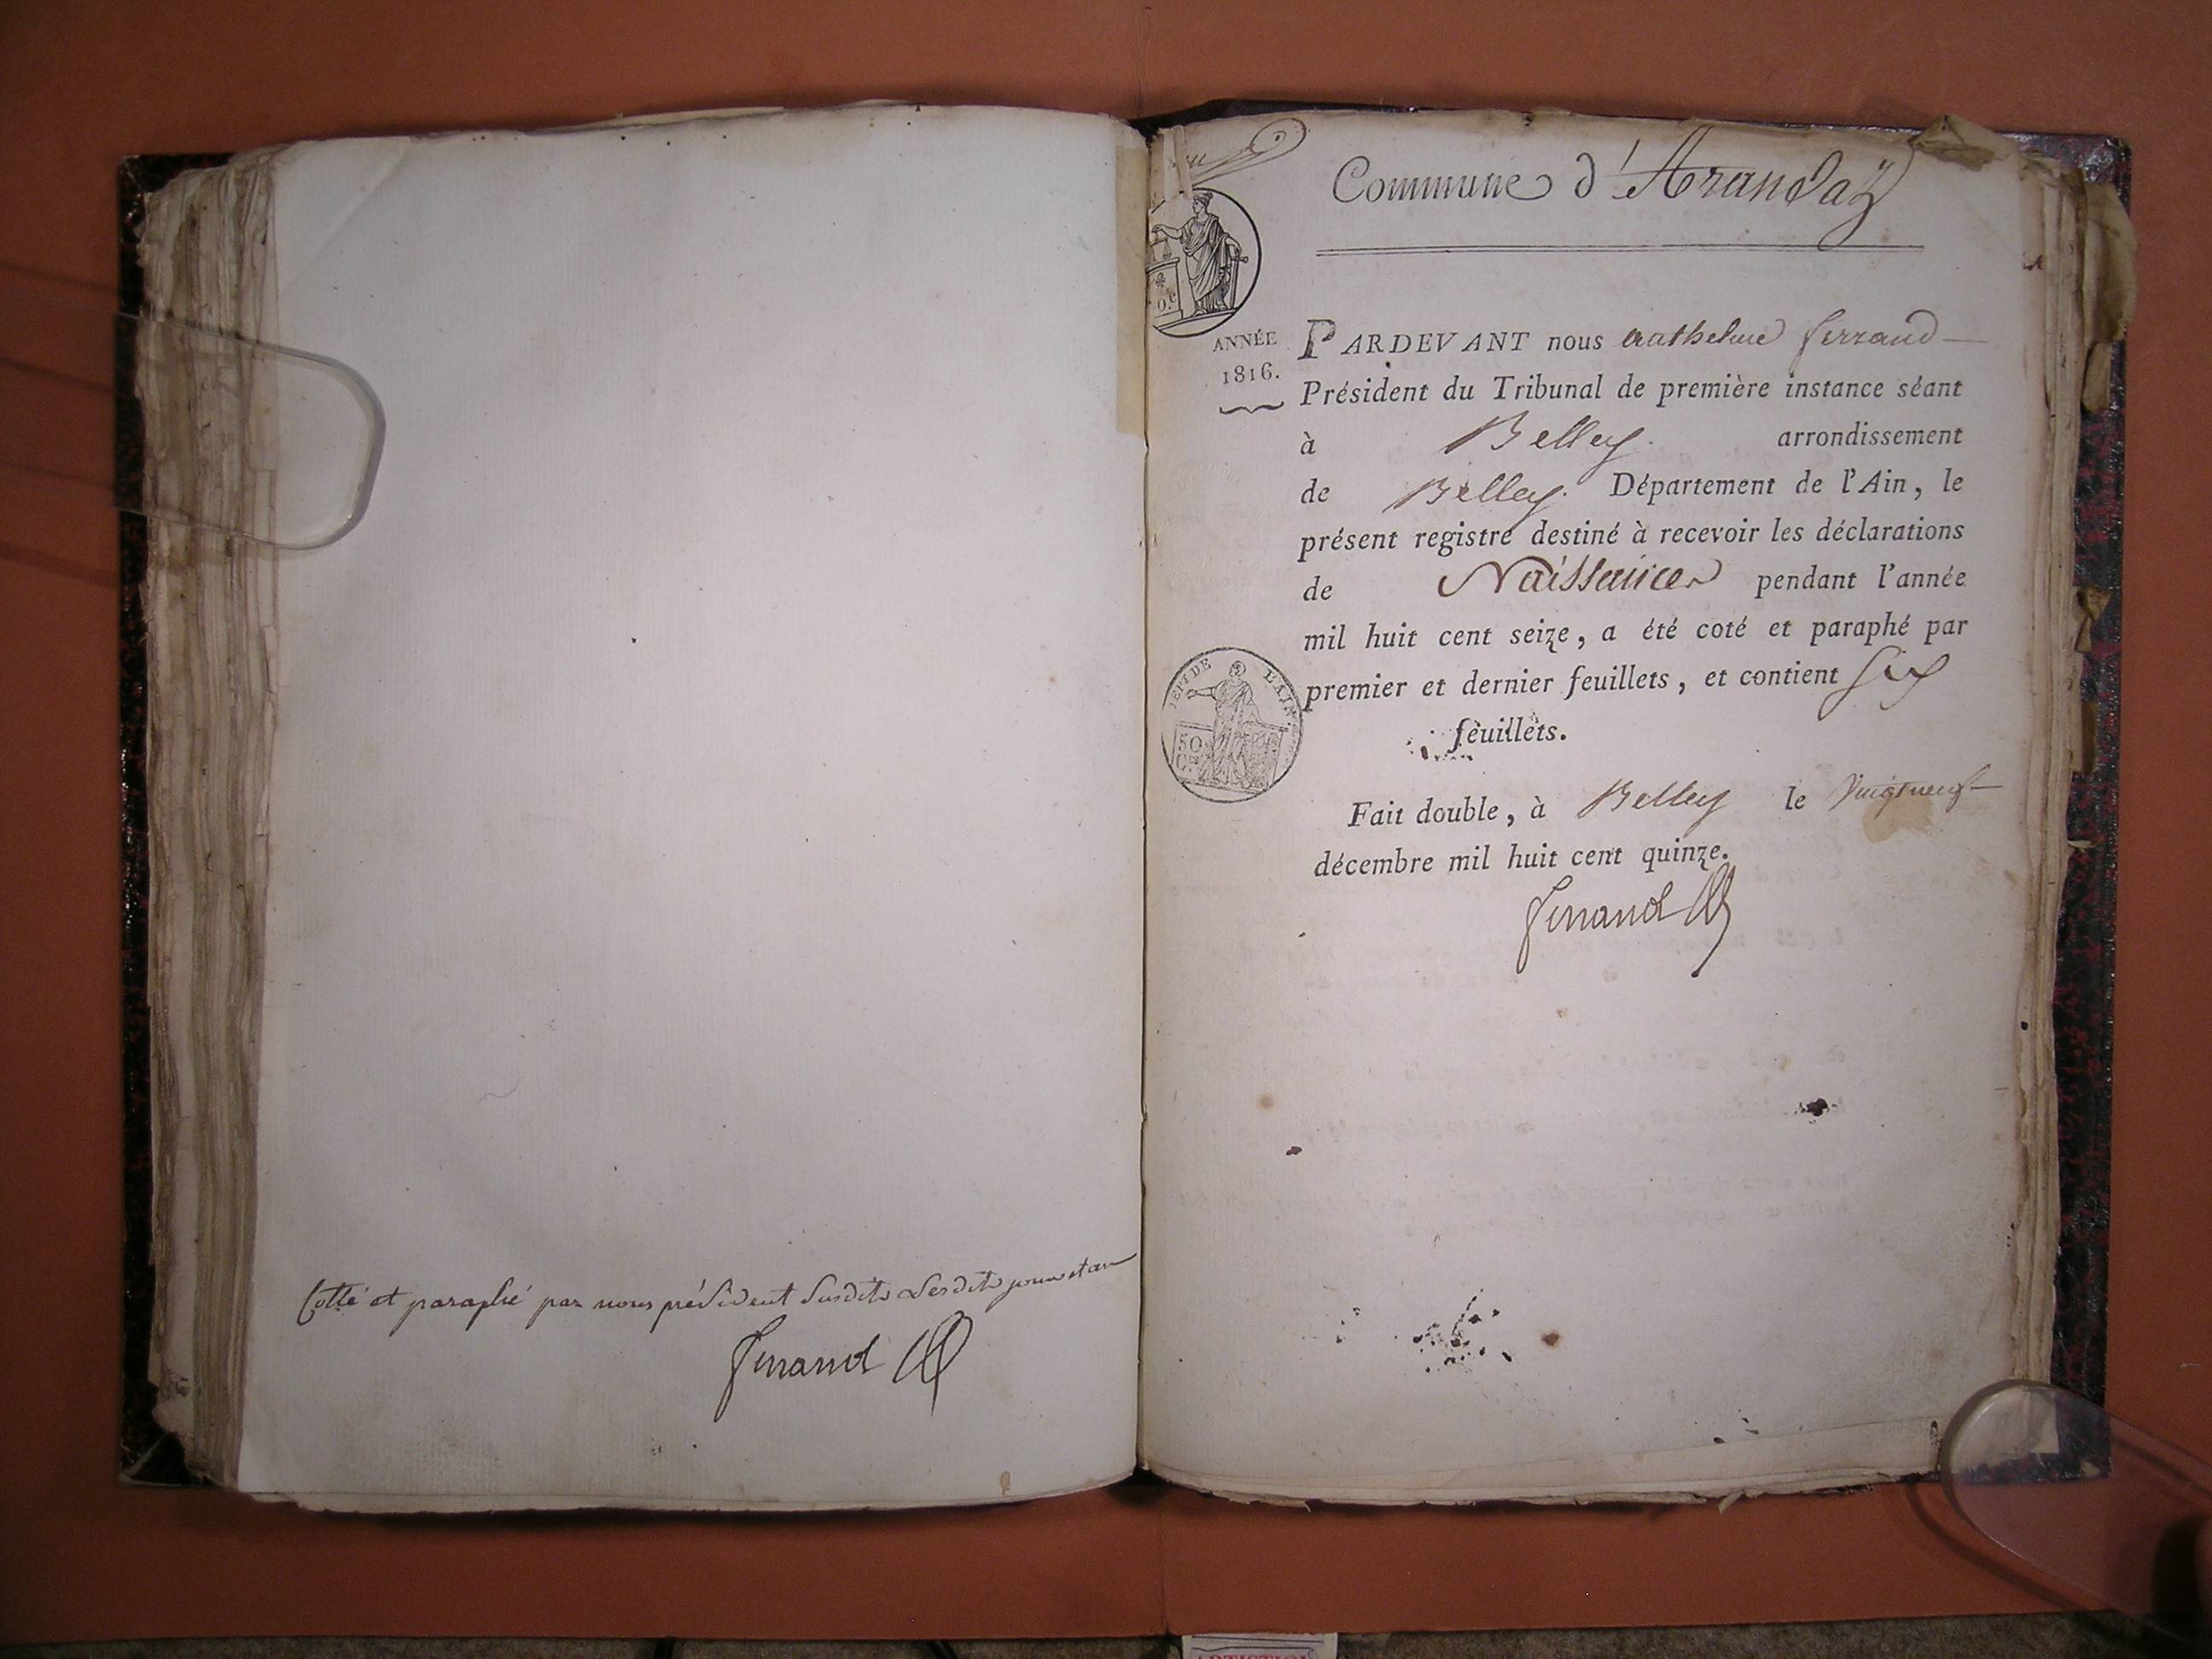 Cotté et paraphé par nous président susdit lesdits jour et an
Ferrand
Commune d'Arandaz
ANNÉE
1816.
PARDEVANT nous anthelme ferrand
Président du Tribunal de première instance séant
à Belley. arrondissement
de Belley. Département de l'Ain, le
présent registre destiné à recevoir les déclarations
de Naissances pendant l'année
mil huit cent seize, a été coté et paraphé par
premier et dernier feuillets, et contient six
feuillets.
DEPT DE L'AIN.
50
C.
Fait double, à Belley le vingt neuf
décembre mil huit cent quinze.
Ferrand